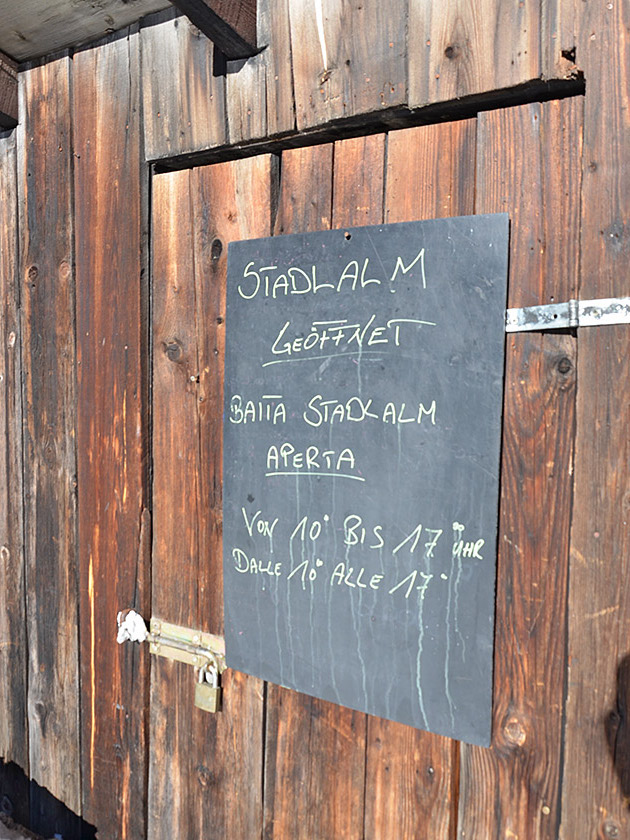 STADLALM
GEÖFFNET
BAITA STADLALM
APERTA
VON 10° BIS 17°° UHR
DALLE 10° ALLE 17°